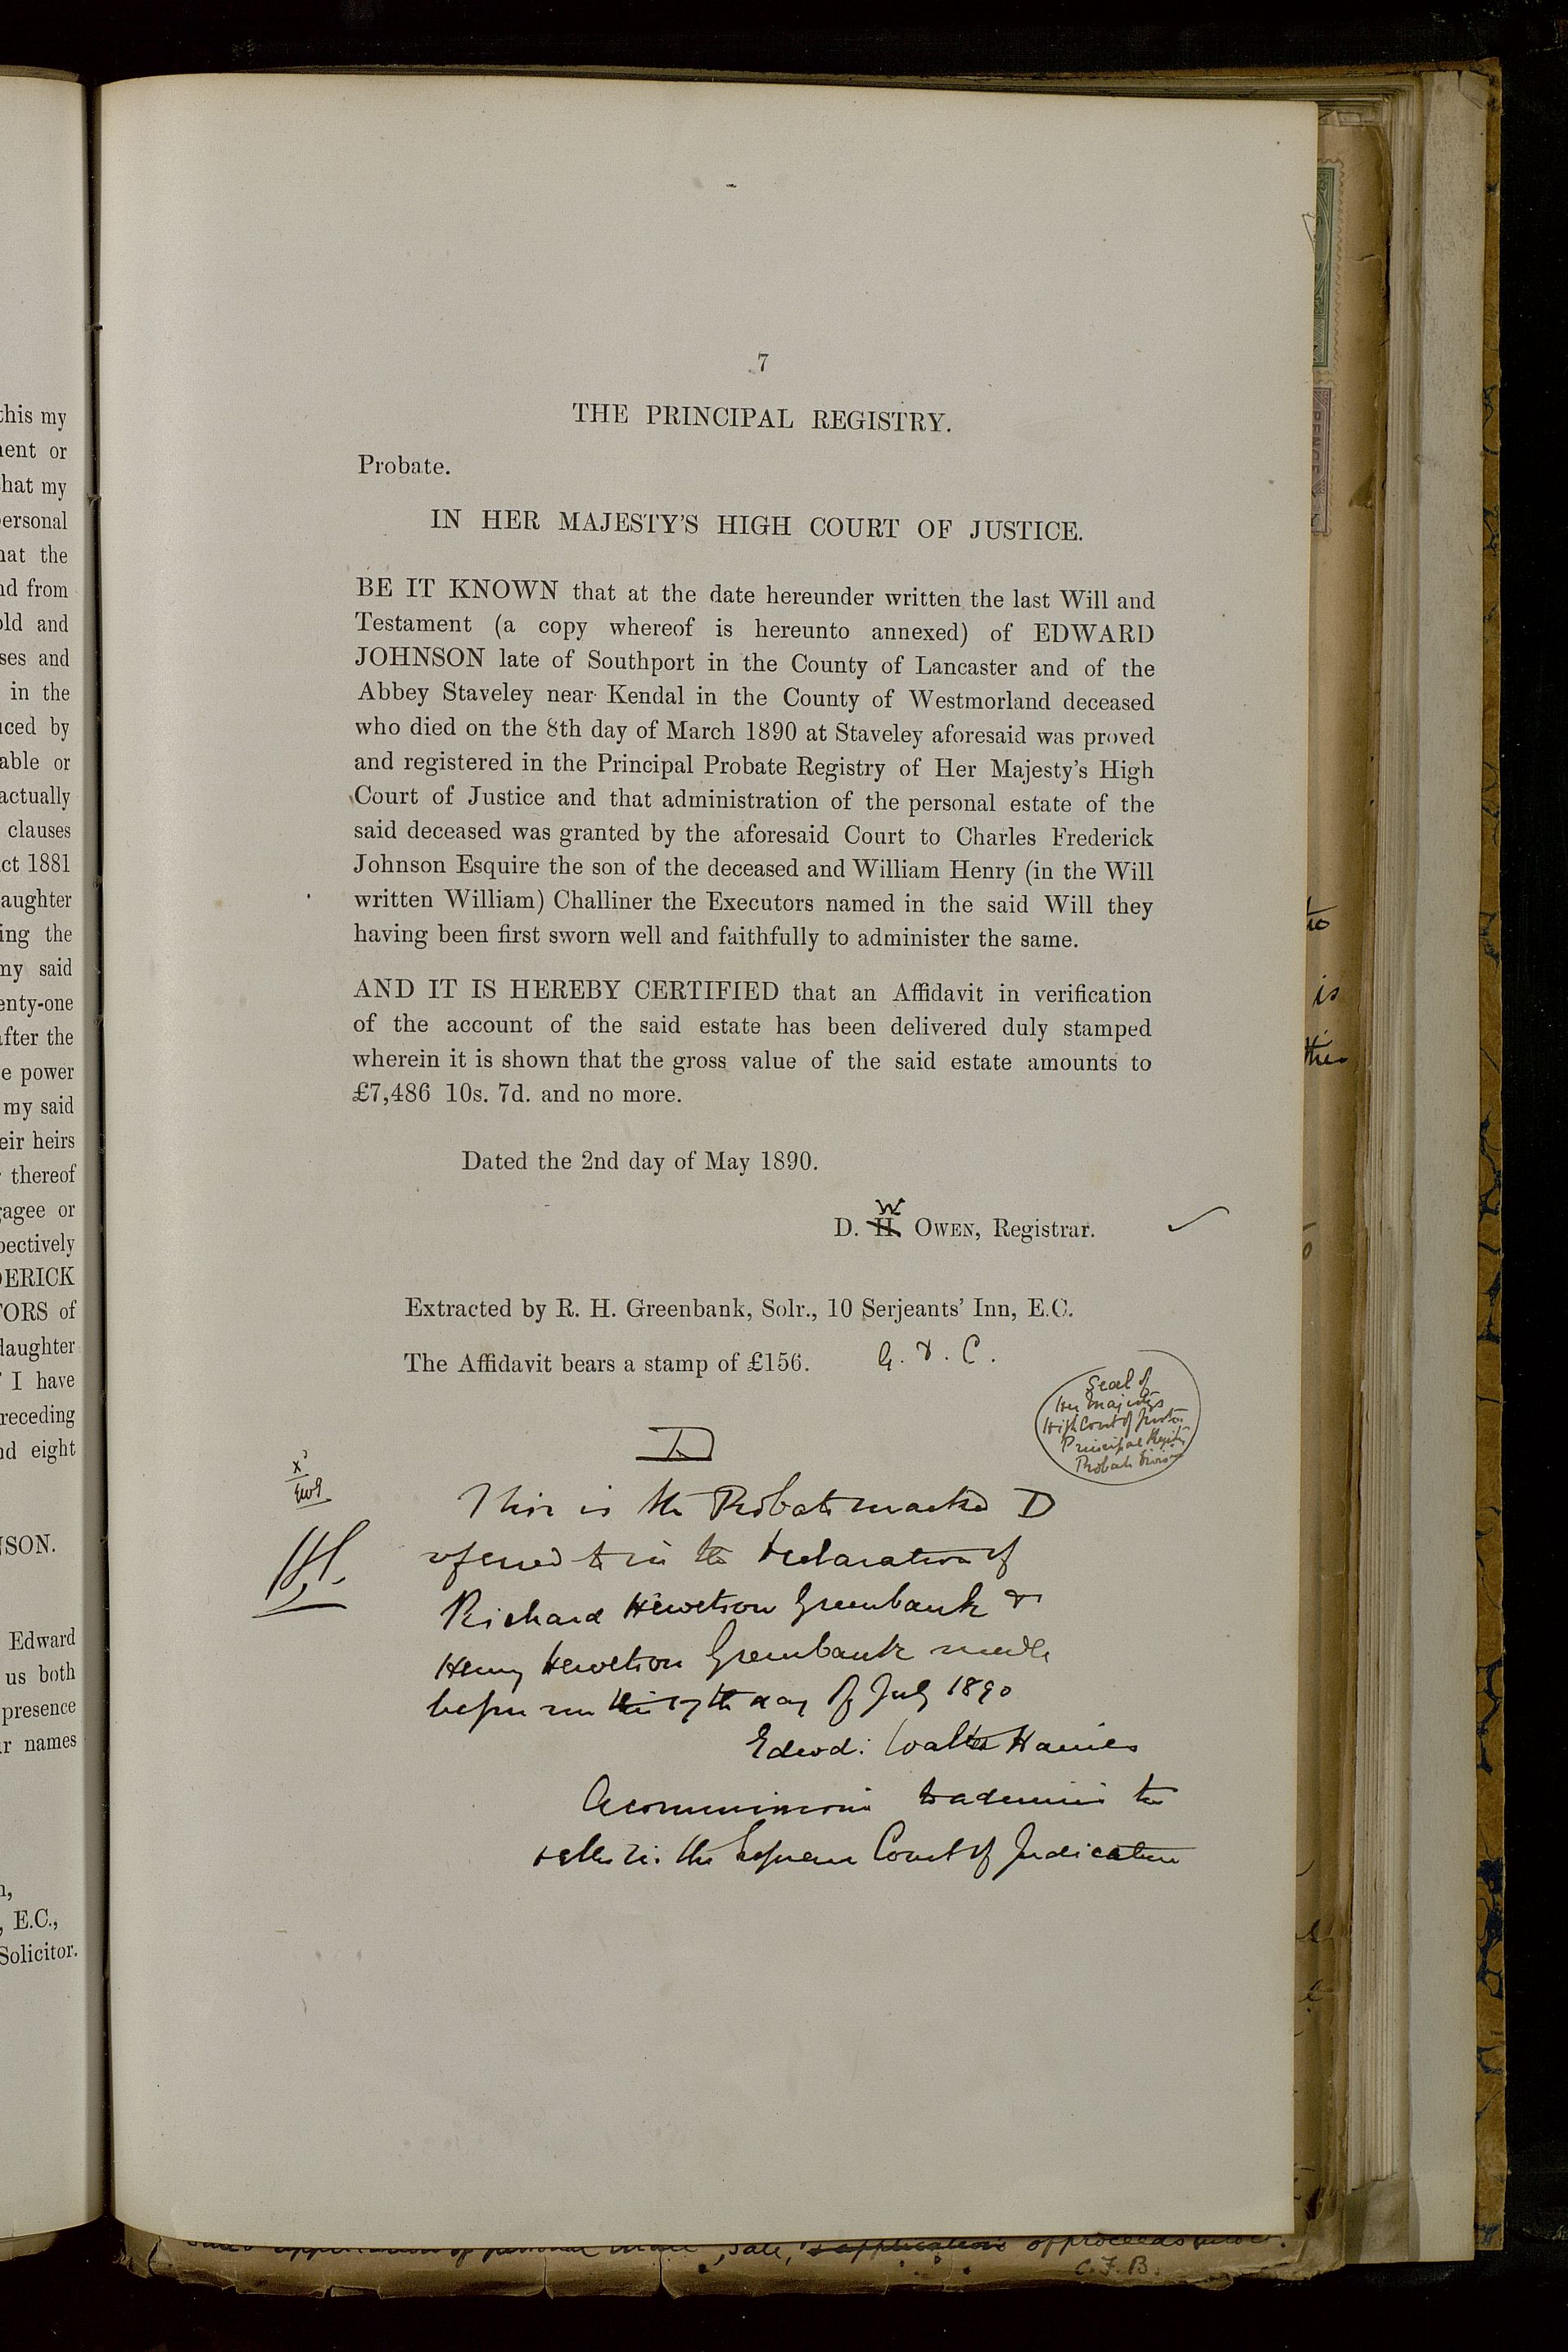 this my
ment or
that my
personal
hat the
nd from
old and
ses and
in the
uced by
able or
actually
clauses
ct 1881
aughter
ing the
my said
enty-one
after the
e power
my said
eir heirs
thereof
gagee or
pectively
DERICK
TORS of
daughter
I have
receding
nd eight
NSON.
Edward
us both
presence
ir names
n,
, E.C.,
Solicitor.
7
THE PRINCIPAL REGISTRY.
Probate.
IN HER MAJESTY'S HIGH COURT OF JUSTICE.
BE IT KNOWN that at the date hereunder written the last Will and
Testament (a copy whereof is hereunto annexed) of EDWARD
JOHNSON late of Southport in the County of Lancaster and of the
Abbey Staveley near Kendal in the County of Westmorland deceased
who died on the 8th day of March 1890 at Staveley aforesaid was proved
and registered in the Principal Probate Registry of Her Majesty's High
Court of Justice and that administration of the personal estate of the
said deceased was granted by the aforesaid Court to Charles Frederick
Johnson Esquire the son of the deceased and William Henry (in the Will
written William) Challiner the Executors named in the said Will they
having been first sworn well and faithfully to administer the same.
AND IT IS HEREBY CERTIFIED that an Affidavit in verification
of the account of the said estate has been delivered duly stamped
wherein it is shown that the gross value of the said estate amounts to
£7,486 10s. 7d. and no more.
Dated the 2nd day of May 1890.
W
D. H. OWEN, Registrar.
Extracted by R. H. Greenbank, Solr., 10 Serjeants' Inn, E.C.
The Affidavit bears a stamp of £156. G. & C.
Seal of
Her Majestys
High Court of Justice
Principal Registry
Probate Division
D
This is the Probate marked D
referred to in the declaration of
Richard Hewetson Greenbank &
Henry Hewetson Greenbank made
before me this 17th day of July 1890
Edwd: Walter
A commissioner to administer
oaths in the Supreme Court of Judicature
to
is
the
sale, & application of proceeds
C.F.B.